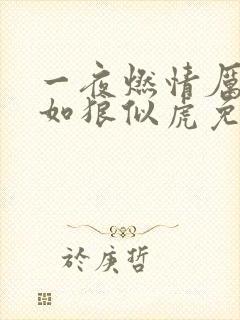 一夜燃情厲
如狼似虎免
於庚哲